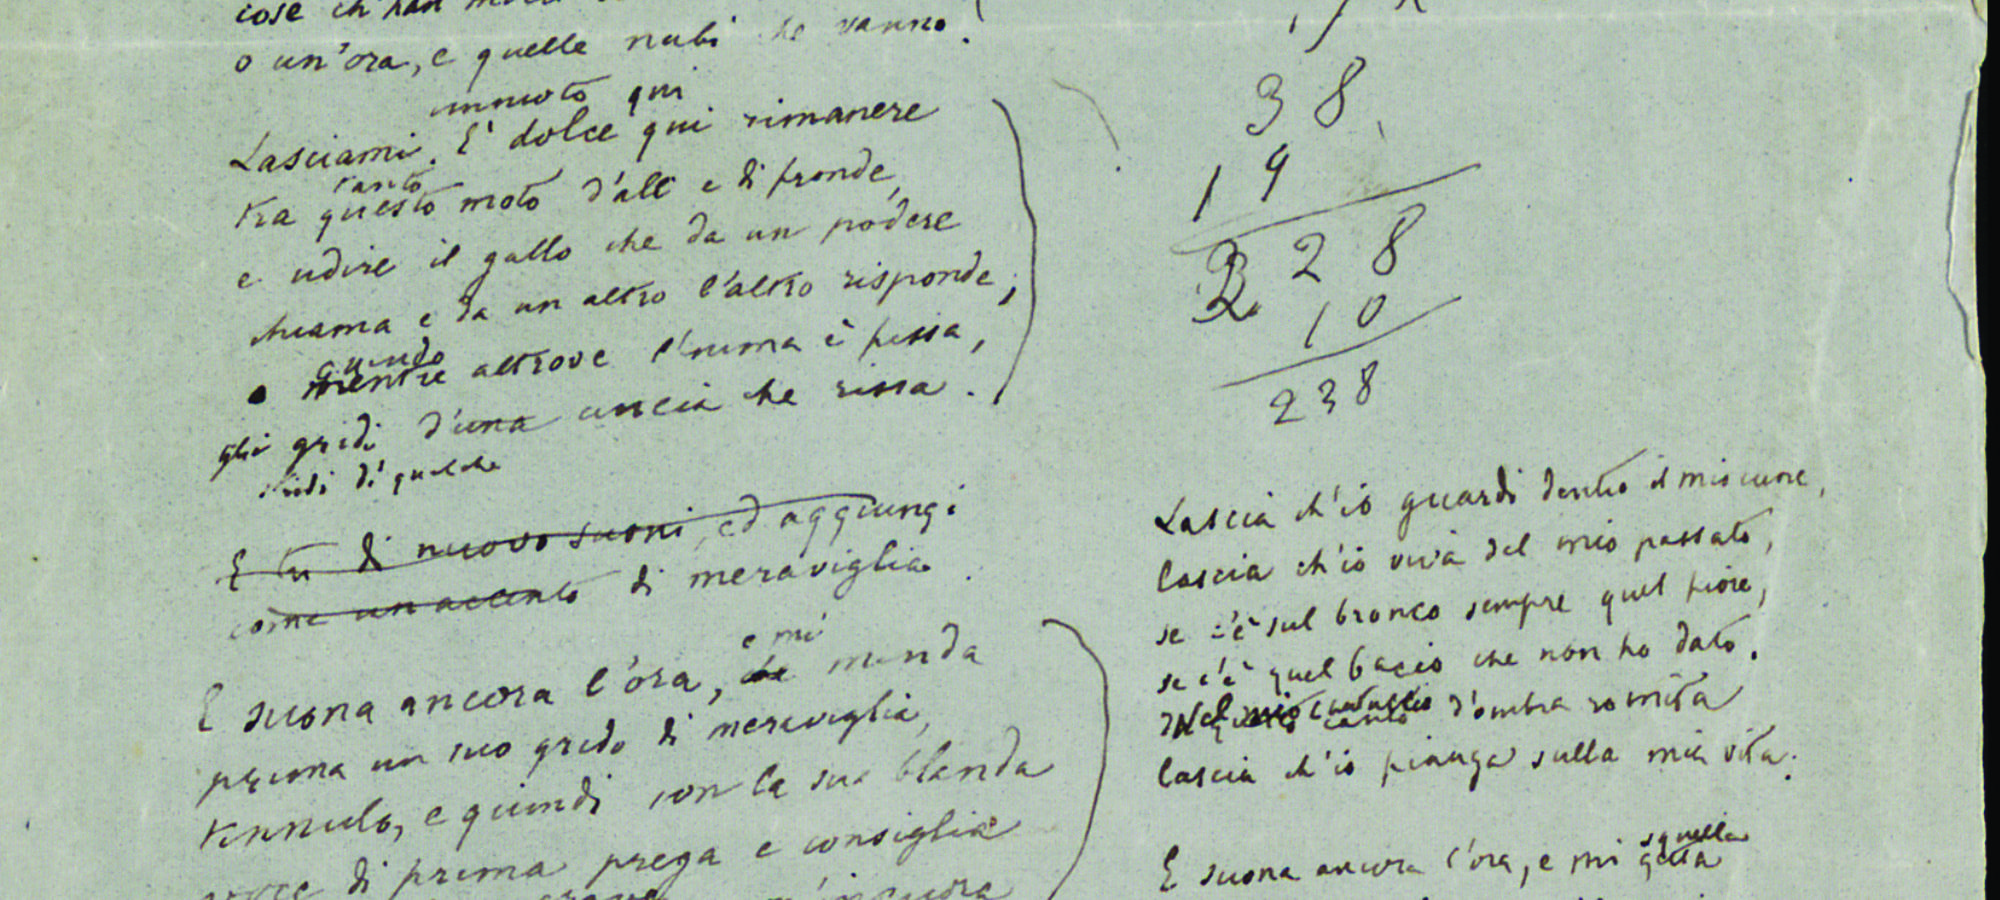 cose ch'han molto
o un'ora, e quelle nubi che vanno!
immoto qui
Lasciami. E' dolce qui rimanere
tanto
tra questo moto d'ale e di fronde,
e udire il gallo che da un podere
chiama e da un altro l'altro risponde;
quando
mentre altrove l'anima è fissa,
gli gridi d'una cincia che rissa.
stridi di qualche
E tu di nuovo suoni, ed aggiungi
come un accento di meraviglia.
e mi
E suona ancora l'ora, che manda
prima un suo grido di meraviglia,
tinnulo, e quindi con la sua blanda
voce di prima prega e consiglia
grave m'incuora
38
19
228
10
238
Lascia ch'io guardi dentro il mio cuore,
lascia ch'io viva del mio passato,
se c'è sul bronco sempre quel fiore,
se c'è quel bacio che non ho dato.
Nel mio cantuccio
questo canto d'ombra romita
lascia ch'io pianga sulla mia vita.
squilla
E suona ancora l'ora, e mi getta